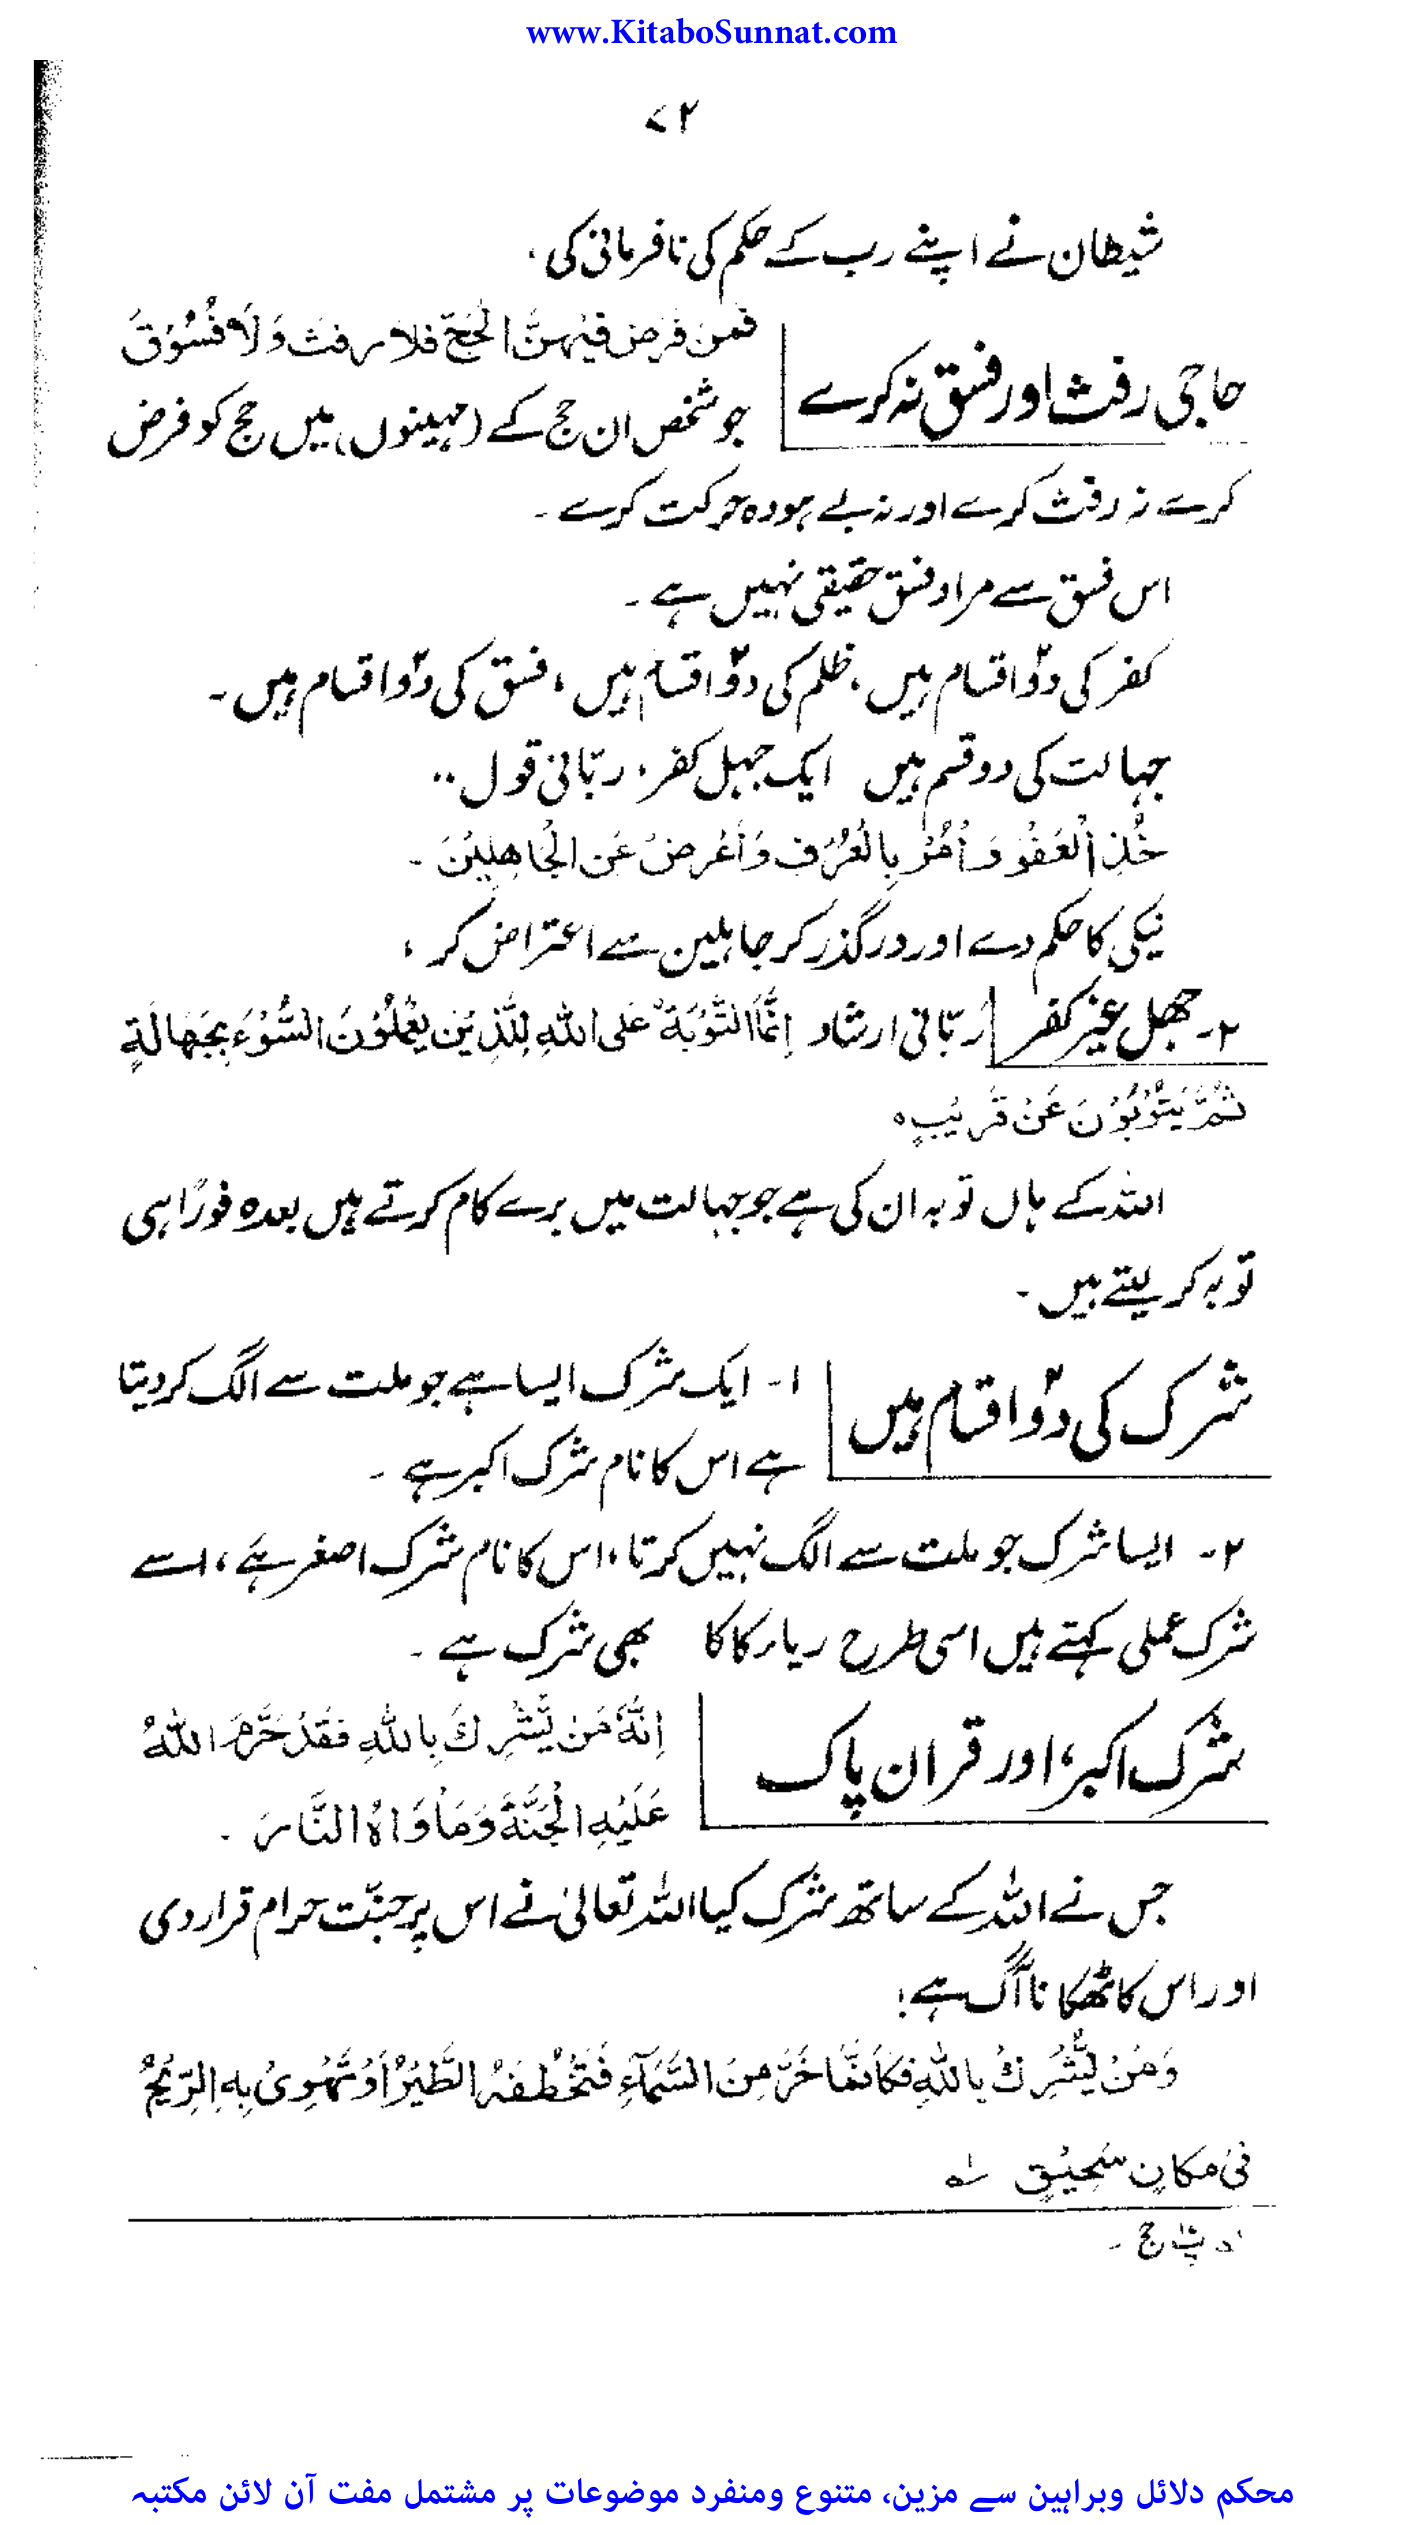 www.KitaboSunnat.com
۷۲
شیطان نے اپنے رب کے حکم کی نافرمانی کی۔
حاجی رفث اور فسق نہ کرے
فَمَنْ فَرَضَ فِيْهِنَّ الْحَجَّ فَلَا رَفَثَ وَلَا فُسُوْقَ
جو شخص ان حج کے (مہینوں) میں حج کو فرض
کرے نہ رفث کرے اور نہ بے ہودہ حرکت کرے ۔
اس فسق سے مراد فسق حقیقی نہیں ہے ۔
کفر کی دو۲ اقسام ہیں، ظلم کی دو۲ اقسام ہیں ، فسق کی دو۲ اقسام ہیں ۔
جہالت کی دو قسم ہیں ایک جہل کفر، ربّانی قول ..
خُذِ الْعَفْوَ وَأْمُرْ بِالْعُرْفِ وَأَعْرِضْ عَنِ الْجَاهِلِيْنَ ۔
نیکی کا حکم دے اور درگذر کر جاہلین سے اعتراض کر ،
۲۔ جھل غیر کفر
ربّانی ارشاد اِنَّمَا التَّوْبَةُ عَلَى اللهِ لِلَّذِيْنَ يَعْمَلُوْنَ السُّوْءَ بِجَهَالَةٍ
ثُمَّ يَتُوْبُوْنَ عَنْ قَرِيْبٍ ہ
اللہ کے ہاں توبہ ان کی ہے جو جہالت میں برے کام کرتے ہیں بعدہ فوراً ہی
توبہ کر لیتے ہیں ۔
شرک کی دو۲ اقسام ہیں
۱۔ ایک شرک ایسا ہے جو ملت سے الگ کر دیتا
ہے اس کا نام شرک اکبر ہے ۔
۲۔ ایسا شرک جو ملت سے الگ نہیں کرتا، اس کا نام شرک اصغر ہے ، اسے
شرک عملی کہتے ہیں اسی طرح ریاء کا کا بھی شرک ہے ۔
شرک اکبر، اور قران پاک
اِنَّهٗ مَنْ يُّشْرِكْ بِاللهِ فَقَدْ حَرَّمَ اللهُ
عَلَيْهِ الْجَنَّةَ وَمَأْوَاهُ النَّارَ ۔
جس نے اللہ کے ساتھ شرک کیا اللہ تعالیٰ نے اس پر جنّت حرام قرار دی
اور اس کا ٹھکانا آگ ہے؛
وَمَنْ يُّشْرِكْ بِاللهِ فَكَاَنَّمَا خَرَّ مِنَ السَّمَآءِ فَتَخْطَفُهُ الطَّيْرُ اَوْ تَهْوِىْ بِهِ الرِّيْحُ
فِىْ مَكَانٍ سَحِيْقٍ ۱ه
حج ۔
محکم دلائل وبراہین سے مزین، متنوع ومنفرد موضوعات پر مشتمل مفت آن لائن مکتبہ